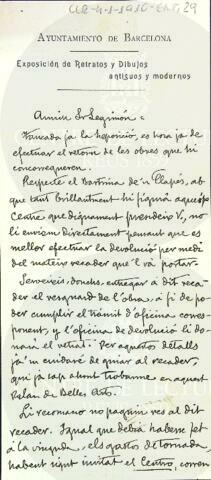 CLR-4-1-1910-ENT 29
AYUNTAMIENTO DE BARCELONA
Exposición de Retratos y Dibujos
antiguos y modernos
Amich Sr Segimón =
Tancada ja la Exposició, es hora ja de
efectuar el retorn de les obres que hi
concorregueren.
Respecte el Bartrina de'n Llagés, ab
que tant brillantment hi figurá aqueix
Centre que dignament presideix V., no
li enviem directament pensant que es
mellor efectuar la devolució per medi
del mateix recader que'l va portar.
Serveixis, donchs, entregar á dit reca-
der el resguard de l'obra, á fi de po-
der cumplir el trámit d'oficina corres-
ponent, y l'oficina de devolució li do-
nará el retrat. Per aquests detalls
ja'm cuidaré de guiar al recader,
que ja cap ahont trobarme en aquest
Palau de Belles Arts.
Li recomano no paguin res al dit
recader. Igual que deurá haberse fet
á la vinguda, els gastos de tornada,
habent sigut invitat el Centro, corren